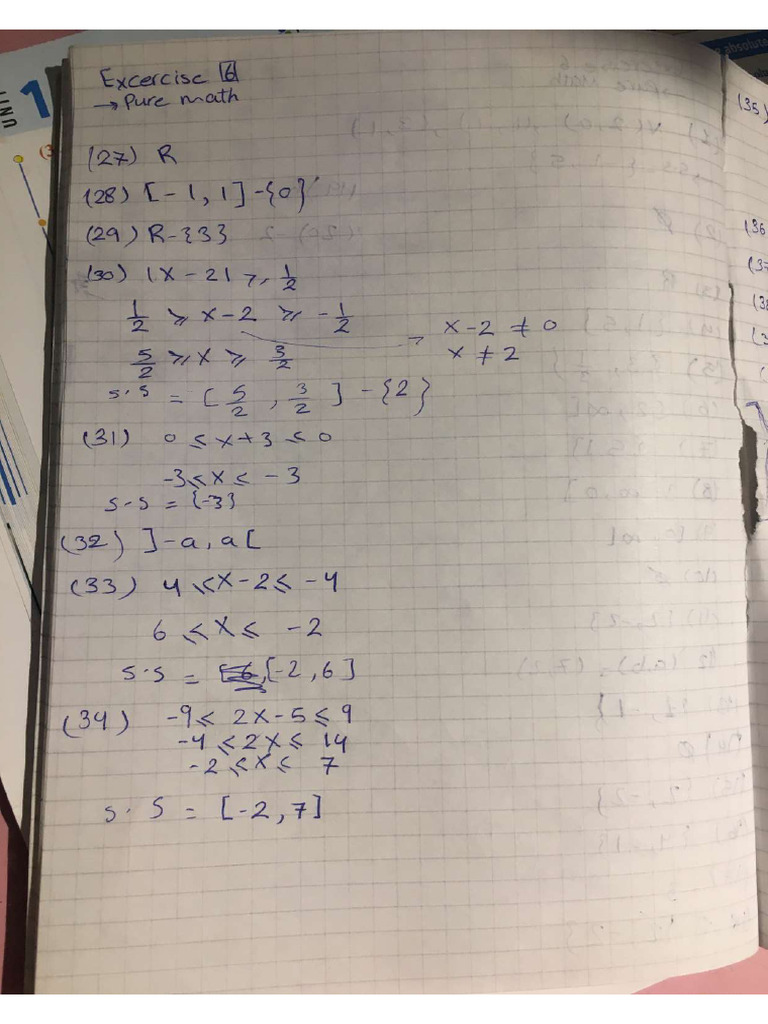 Excercise 6
→ Pure math
(27) R
(28) [-1, 1] -{0}
(29) R-{3}
(30) |x-2| ⩾ 1/2
1/2 ⩾ x-2 ⩾ -1/2
→ x-2 ≠ 0
5/2 ⩾ x ⩾ 3/2
x ≠ 2
s.s = [5/2, 3/2] -{2}
(31) 0 ⩽ x+3 ⩽ 0
-3 ⩽ x ⩽ -3
s.s = {-3}
(32) ]-a, a[
(33) 4 ⩽ x-2 ⩽ -4
6 ⩽ x ⩽ -2
s.s = [-2, 6]
(34) -9 ⩽ 2x-5 ⩽ 9
-4 ⩽ 2x ⩽ 14
-2 ⩽ x ⩽ 7
s.s = [-2, 7]
(35)
(36
(37
(38
UNIT
1
absolute